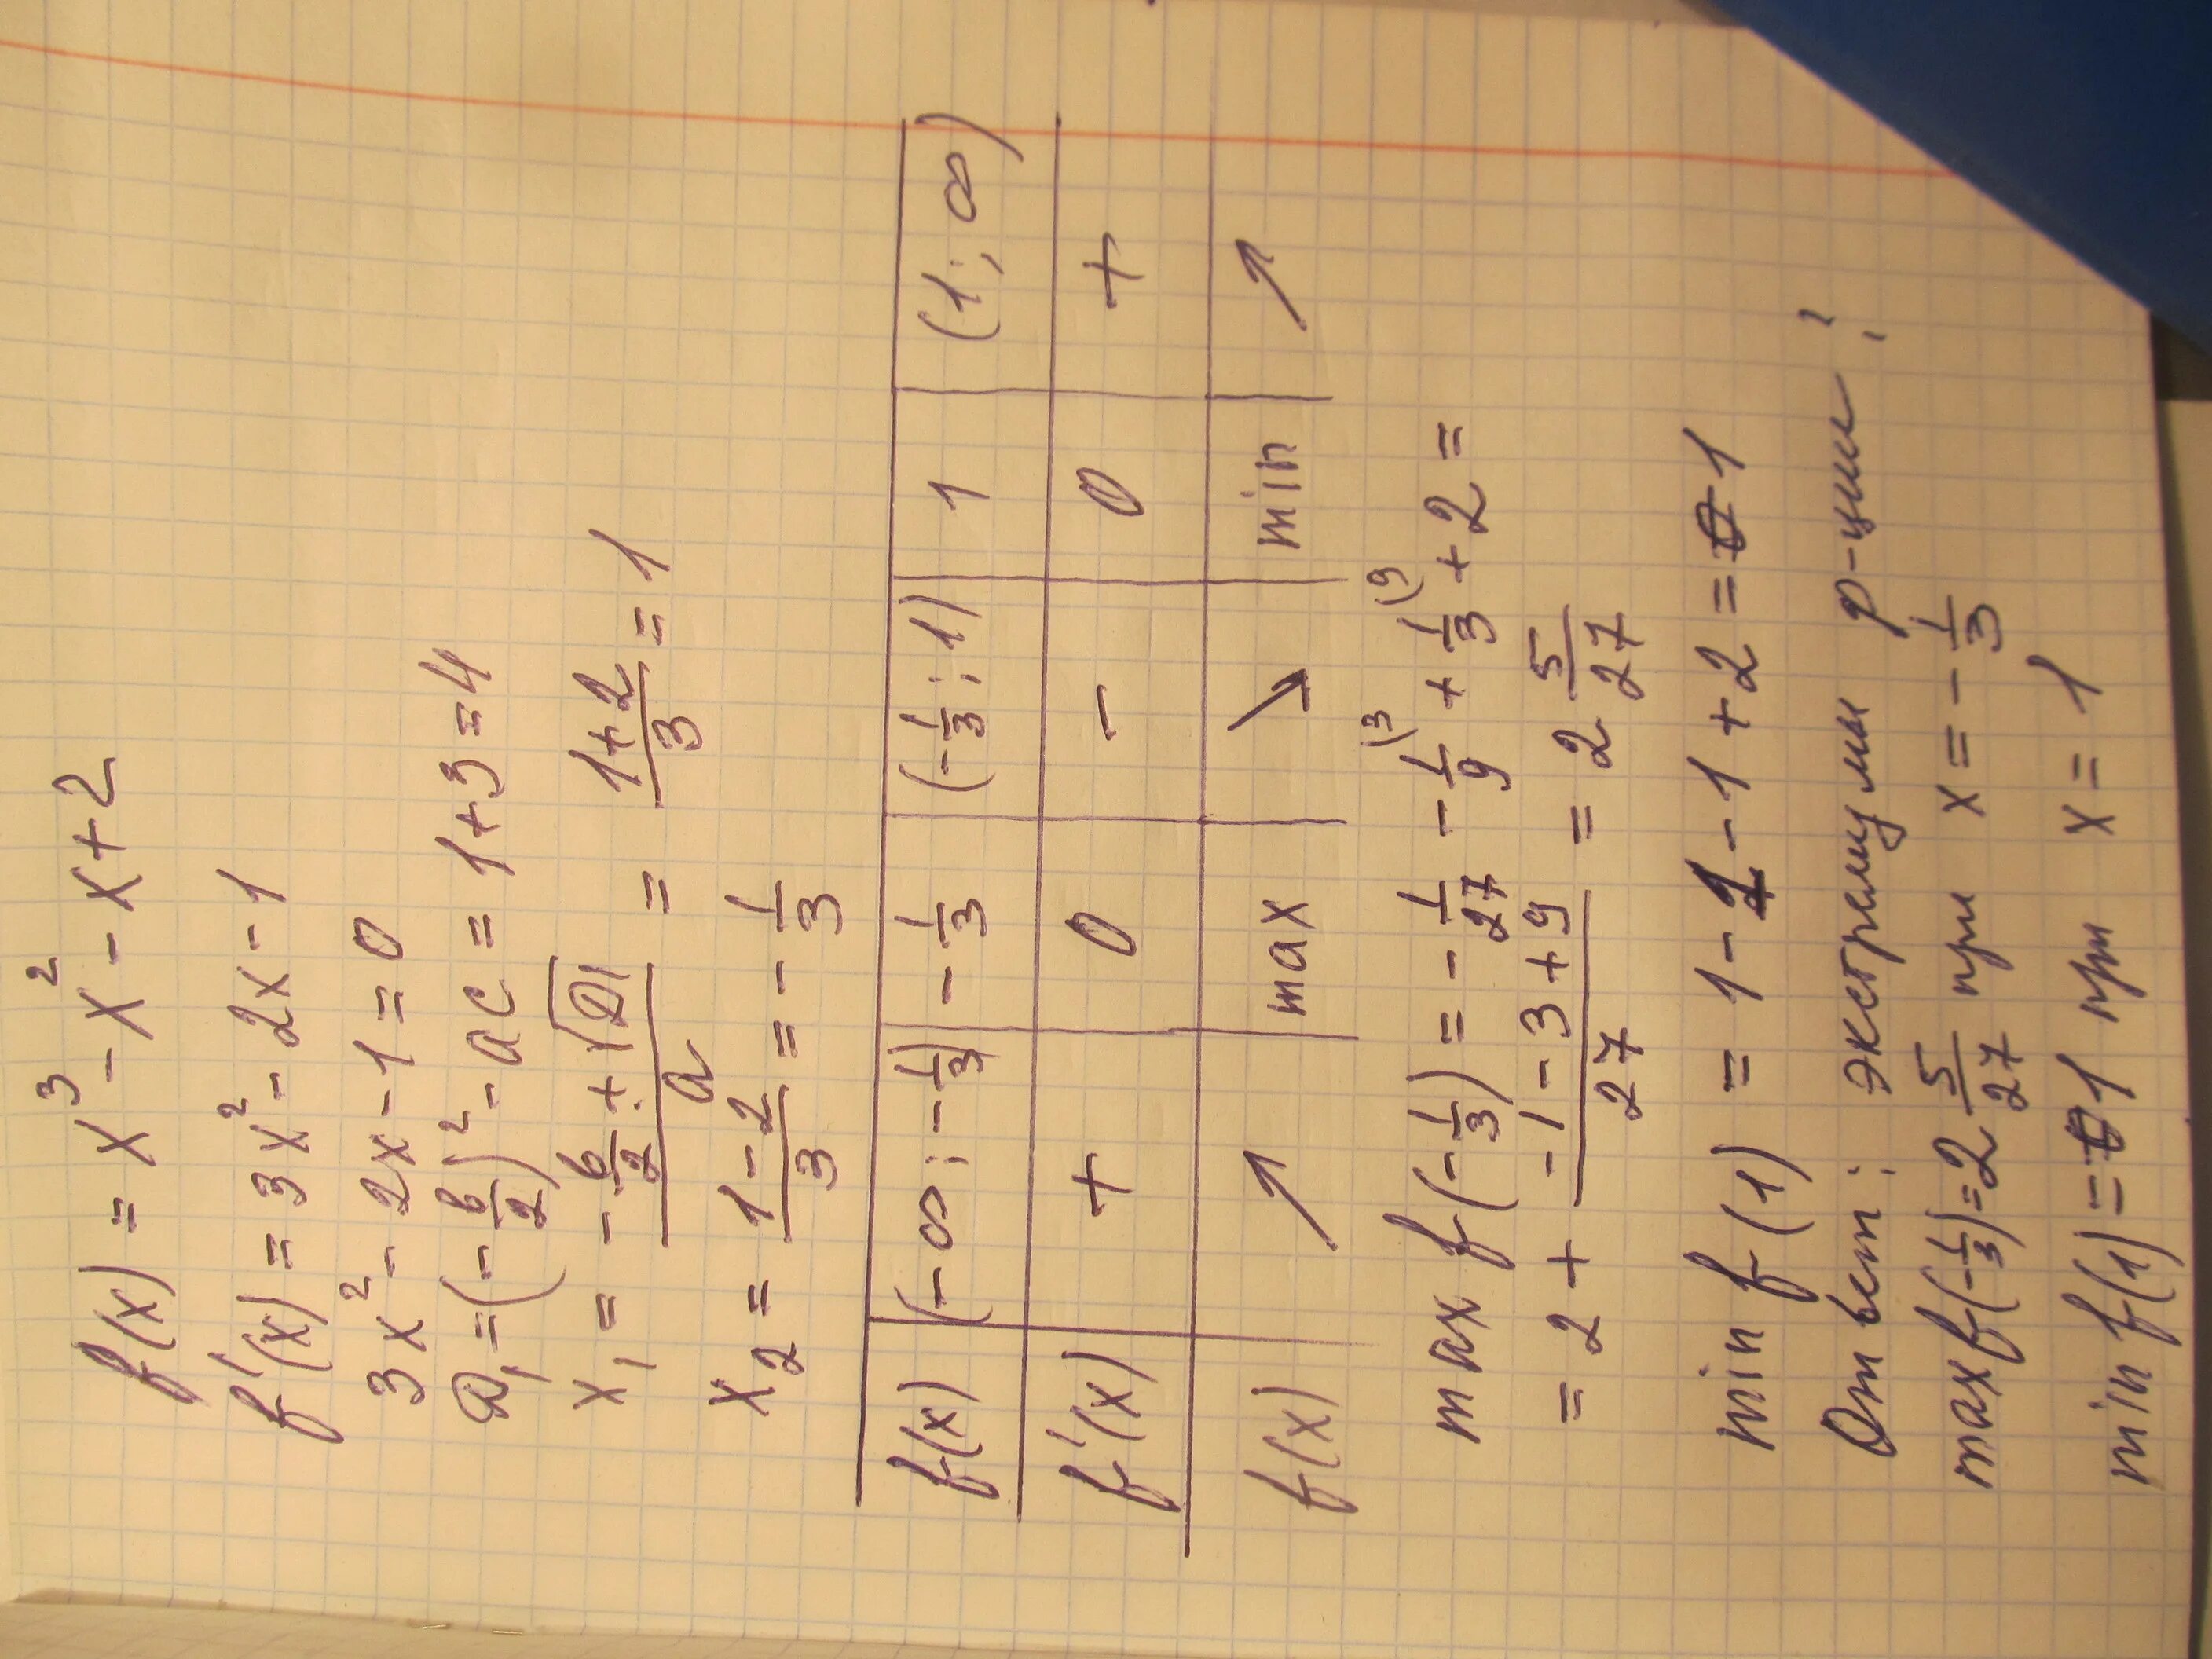 f(x) = x³ - x² - x + 2
f'(x) = 3x² - 2x - 1
3x² - 2x - 1 = 0
D₁ = (-b/2)² - ac = 1+3 = 4
x₁ = (-b/2 ± √D₁)/a = (1+2)/3 = 1
x₂ = (1-2)/3 = -1/3
f(x) | (-∞; -1/3) | -1/3 | (-1/3; 1) | 1 | (1; ∞)
f'(x) | + | 0 | - | 0 | +
f(x) | ↗ | max | ↘ | min | ↗
max f(-1/3) = -1/27 - 1/9 (3 + 1/3 (9 + 2 =
= 2 + (-1-3+9)/27 = 2 5/27
min f(1) = 1 - 1 - 1 + 2 = 1
Ответ: экстремумы р-ции:
max f(-1/3) = 2 5/27 при x = -1/3
min f(1) = 1 при x = 1